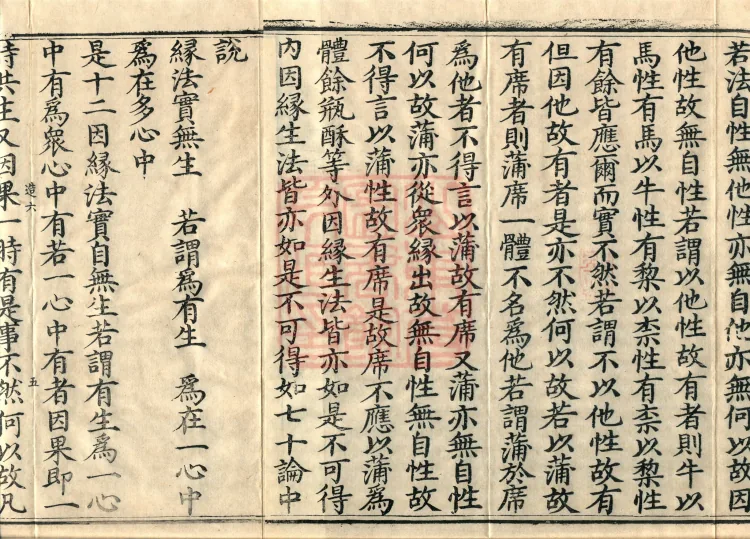 若法自性無他性亦無自他亦無何以故因
他性故無自性若謂以他性故有者則牛以
馬性有馬以牛性有梨以柰性有柰以梨性
有餘皆應爾而實不然若謂不以他性故有
但因他故有者是亦不然何以故若以蒲故
有席者則蒲席一體不名爲他若謂蒲於席
爲他者不得言以蒲故有席又蒲亦無自性
何以故蒲亦從衆緣出故無自性無自性故
不得言以蒲性故有席是故席不應以蒲爲
體餘瓶酥等外因緣生法皆亦如是不可得
内因緣生法皆亦如是不可得如七十論中
說
緣法實無生　若謂爲有生　爲在一心中
爲在多心中
是十二因緣法實自無生若謂有生爲一心
中有爲衆心中有若一心中有者因果即一
造六　五
時共生又因果一時有是事不然何以故凡